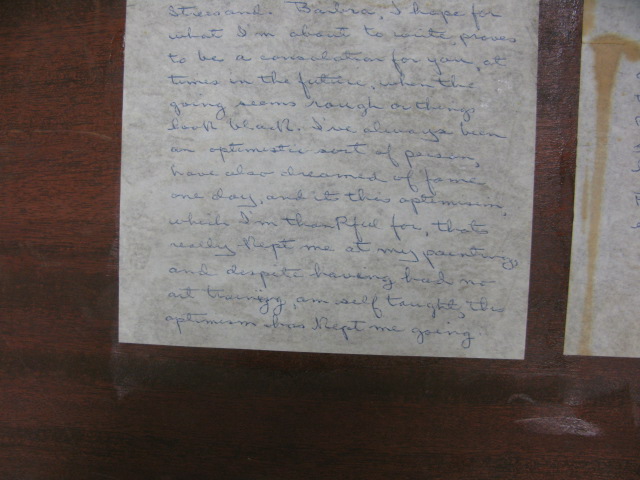 Streisand. Barbra, I hope for
what I'm about to write proves
to be a consolation for you, at
times in the future, when the
going seems rough or things
look black. I've always been
an optimistic sort of person,
have also dreamed of fame
one day, and it's this optimism,
which I'm thankful for, that's
really kept me at my painting,
and despite having had no
art training, am self taught, this
optimism has kept me going.